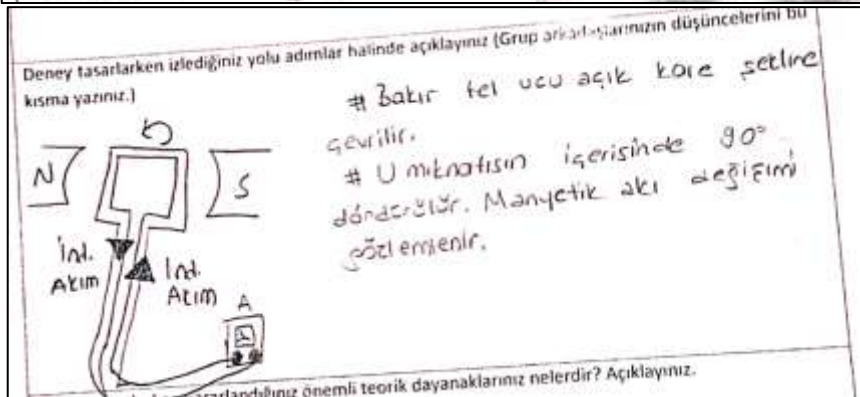 Deney tasarlarken izlediğiniz yolu adımlar halinde açıklayınız (Grup arkadaşlarınızın düşüncelerini bu
kısma yazınız.)
# Bakır tel ucu açık kare şekline
çevrilir.
# U mıknatısın içerisinde 90°
döndürülür. Manyetik akı değişimi
gözlemlenir.
N
S
İnd.
Akım
İnd.
Akım
A
önemli teorik dayanaklarınız nelerdir? Açıklayınız.